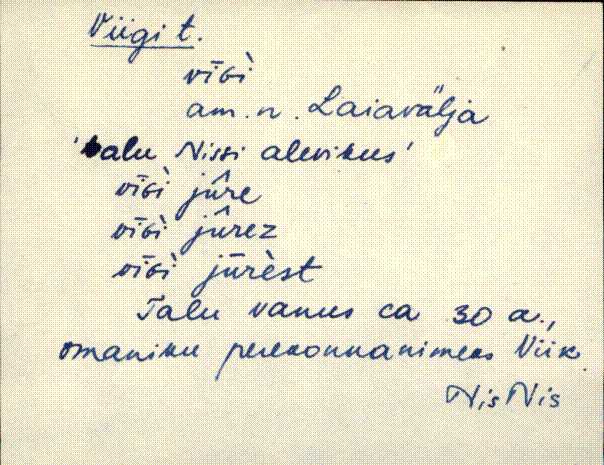 Viigi t.
vīGì
am. n. Laiavälja
'talu Nissi alevikus'
vīGì jūre
vīGì jūrez
vīGì jūrèst
Talu vanus ca 30 a.,
omaniku perekonnanimeks Viik.
Nis Nis